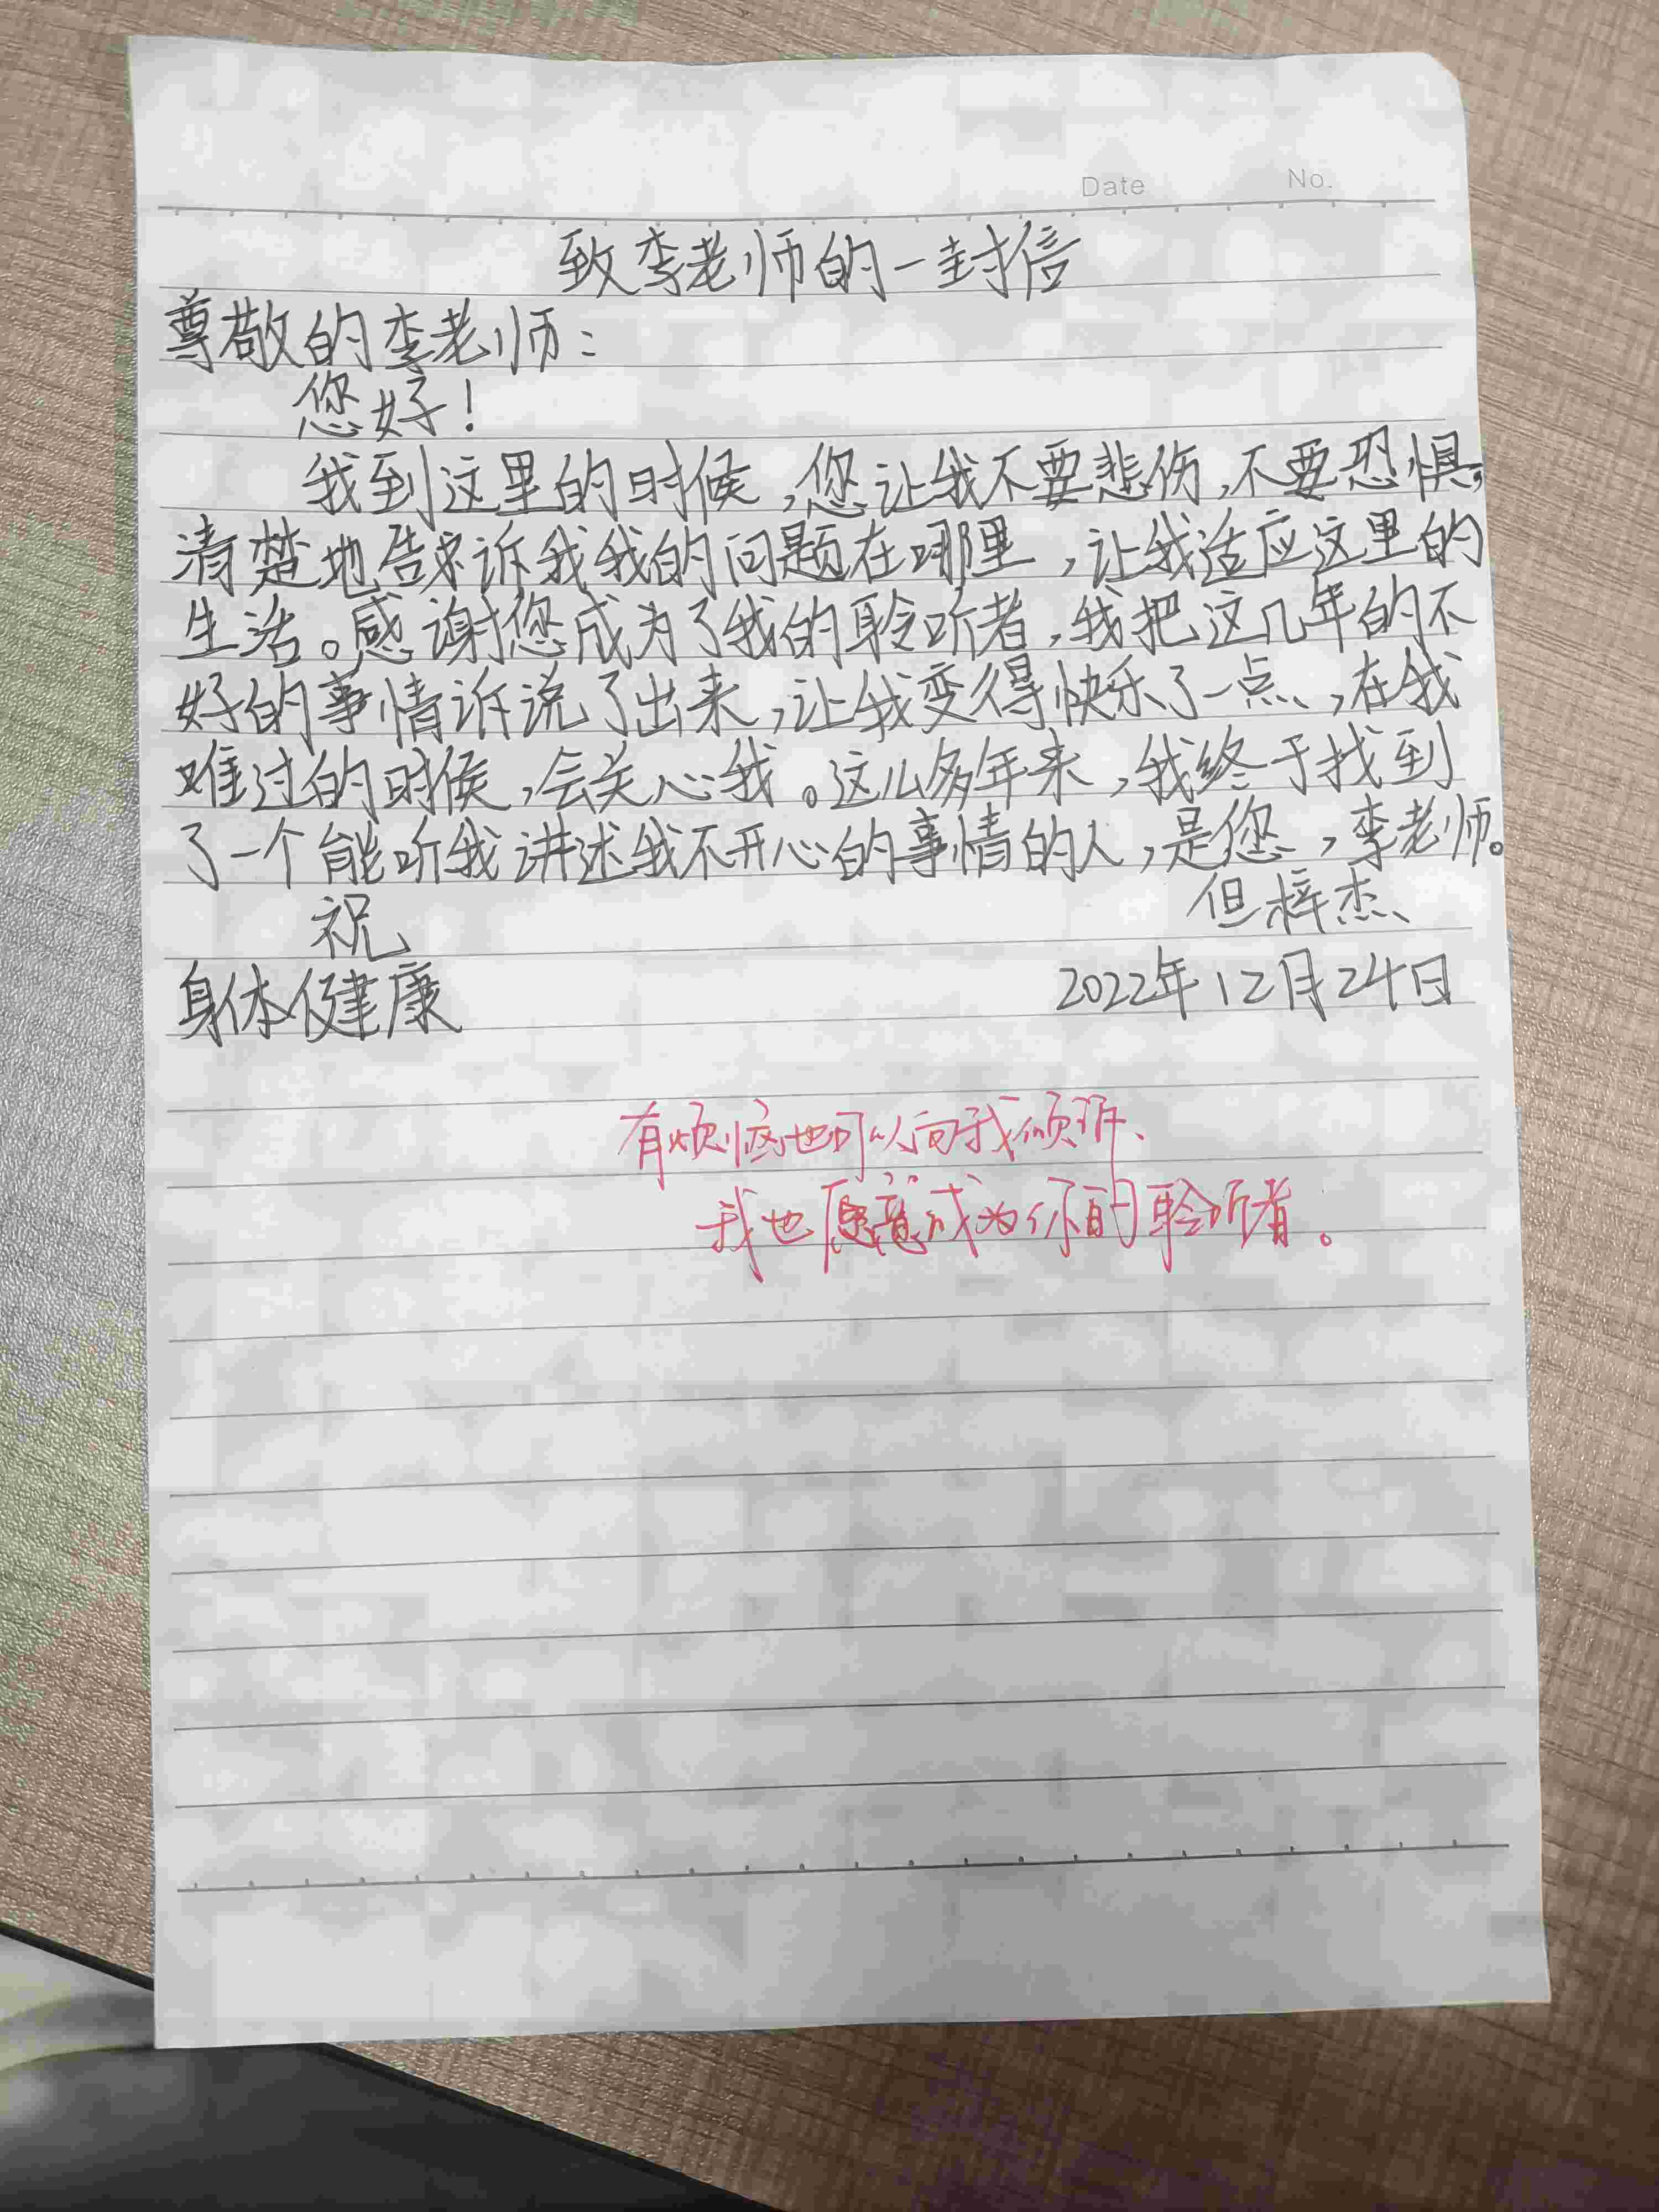 Date No.
致李老师的一封信
尊敬的李老师：
您好！
我到这里的时候，您让我不要悲伤，不要恐惧，
清楚地告诉我我的问题在哪里，让我适应这里的
生活。感谢您成为了我的聆听者，我把这几年的不
好的事情诉说了出来，让我变得快乐了一点，在我
难过的时候，会关心我。这么多年来，我终于找到
了一个能听我讲述我不开心的事情的人，是您，李老师。
祝 但梓杰
身体健康 2022年12月24日
有烦恼也可以向我倾诉、
我也愿意成为你的聆听者。